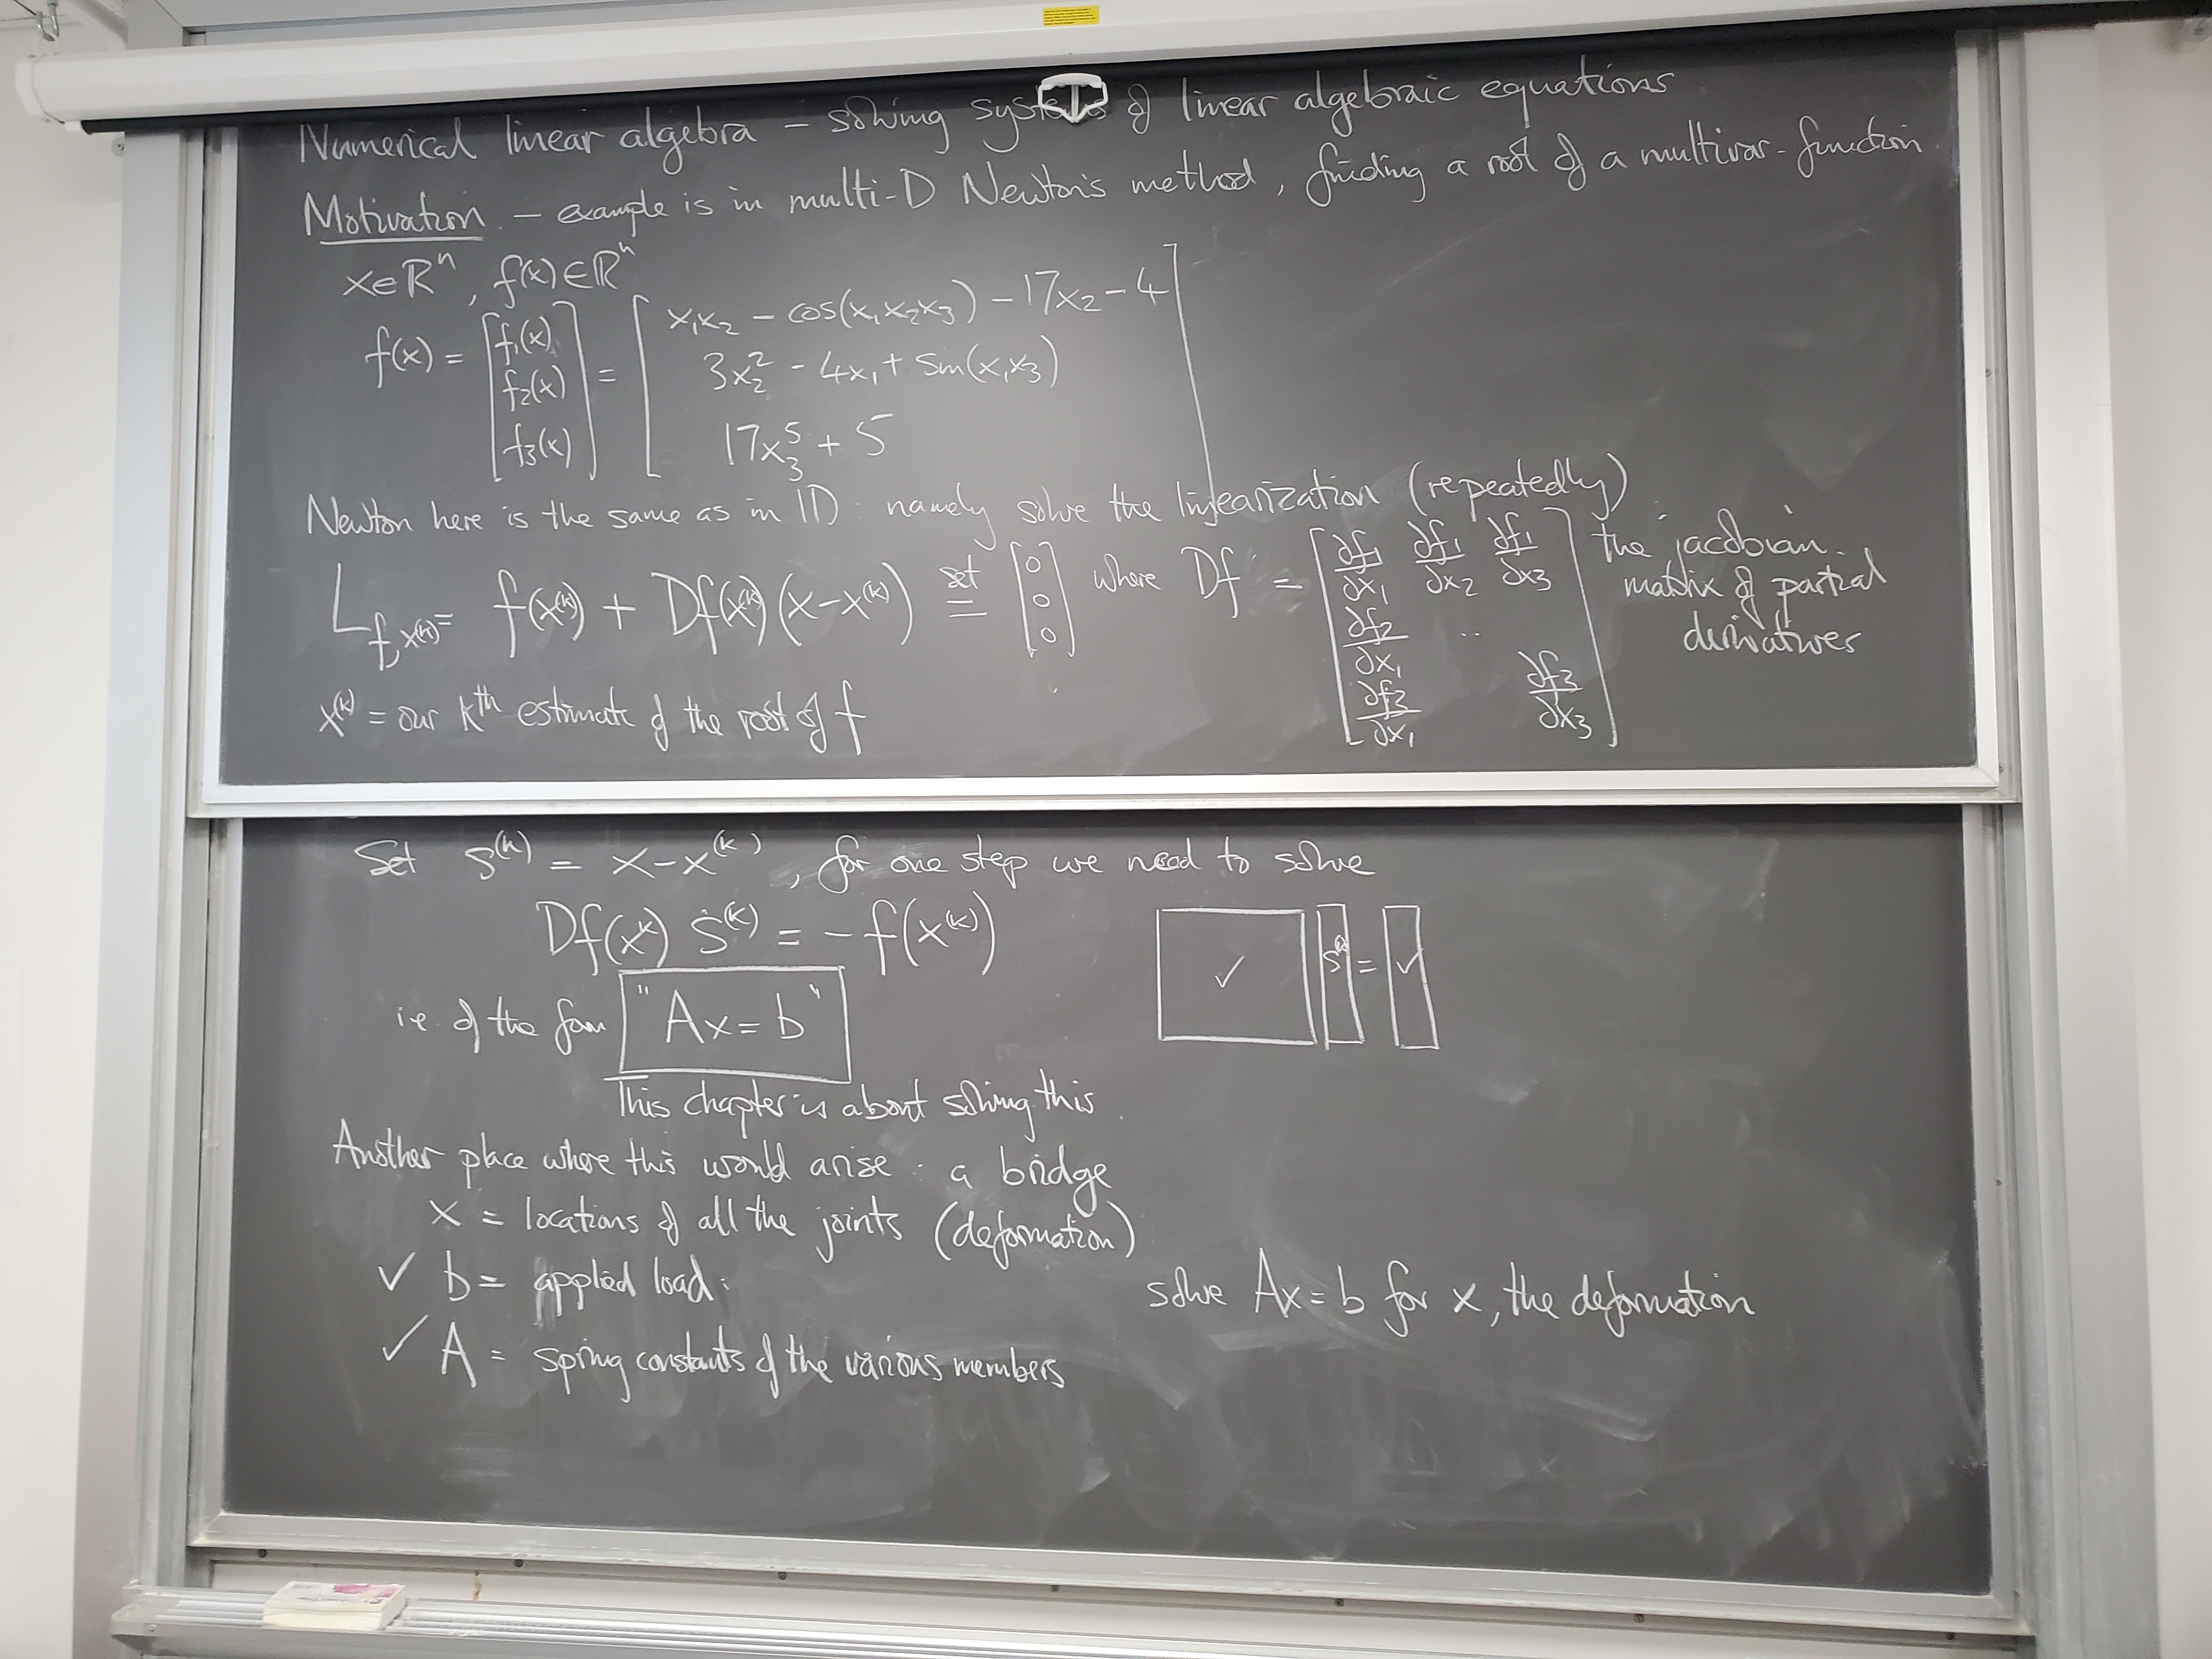 Numerical linear algebra – solving systems of linear algebraic equations
Motivation – example is in multi-D Newton's method, finding a root of a multivar-function.
x∈ℝⁿ, f(x)∈ℝⁿ
f(x) = [f₁(x) f₂(x) f₃(x)] = [x₁x₂ – cos(x₁x₂x₃) – 17x₂ – 4
3x₂² - 4x₁ + sin(x₁x₃)
17x₃⁵ + 5]
Newton here is the same as in 1D: namely solve the linearization (repeatedly)
L_{f,x^(k)} = f(x^(k)) + Df(x^(k))(x-x^(k)) set = [0 0 0] where Df = [∂f₁/∂x₁ ∂f₁/∂x₂ ∂f₁/∂x₃
∂f₂/∂x₁ ..
∂f₃/∂x₁ ∂f₃/∂x₃]
the jacobian.
matrix of partial
derivatives
x^(k) = our kth estimate of the root of f
Set s^(k) = x-x^(k), for one step we need to solve
Df(x^k) s^(k) = -f(x^(k))
✓ s^(k) = ✓
i.e. of the form "Ax = b"
This chapter is about solving this.
Another place where this would arise: a bridge
x = locations of all the joints (deformation)
✓ b = applied load.
solve Ax = b for x, the deformation
✓ A = spring constants of the various members